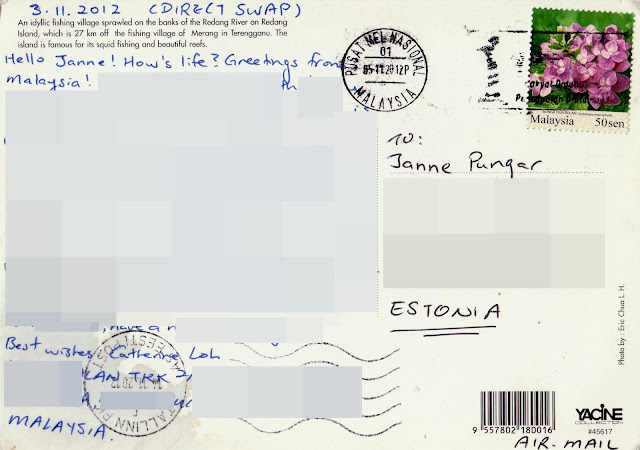 3.11.2012 (DIRECT SWAP)
An idyllic fishing village sprawled on the banks of the Redang River on Redang
Island, which is 27 km off the fishing village of Merang in Terengganu. The
island is famous for its squid fishing and beautiful reefs.
Hello Janne! How's life? Greetings from
Malaysia!
, have a n
Best wishes, Catherine Loh
LAN TKK
MALAYSIA.
PUSAT MEL NASIONAL
01
05-11 2012P
MALAYSIA
Malaysia 50sen
TO:
Janne Pungar
ESTONIA
EESTI POST
TALLINN
Photo by : Eric Chua L. H.
9 557802 180016
YACINE
COLLECTION
#45617
AIR-MAIL